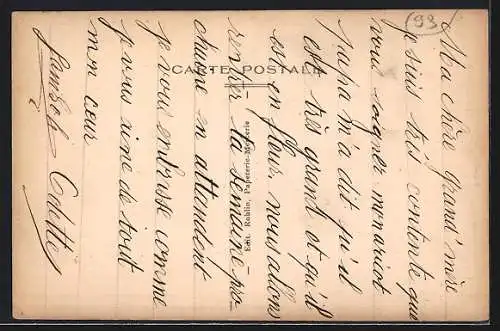 CARTE POSTALE
Edit. Roblin, Papeterie-Mercerie
93
Ma chère grand'mère
je suis très contente que
vous soignez mon aricot
papa m'a dit qu'il
est très grand et qu'il
est en fleur, nous allons
rentrer la semaine pro-
chaine en attendent
je vous embrasse comme
je vous aime de tout
mon cœur
Odette